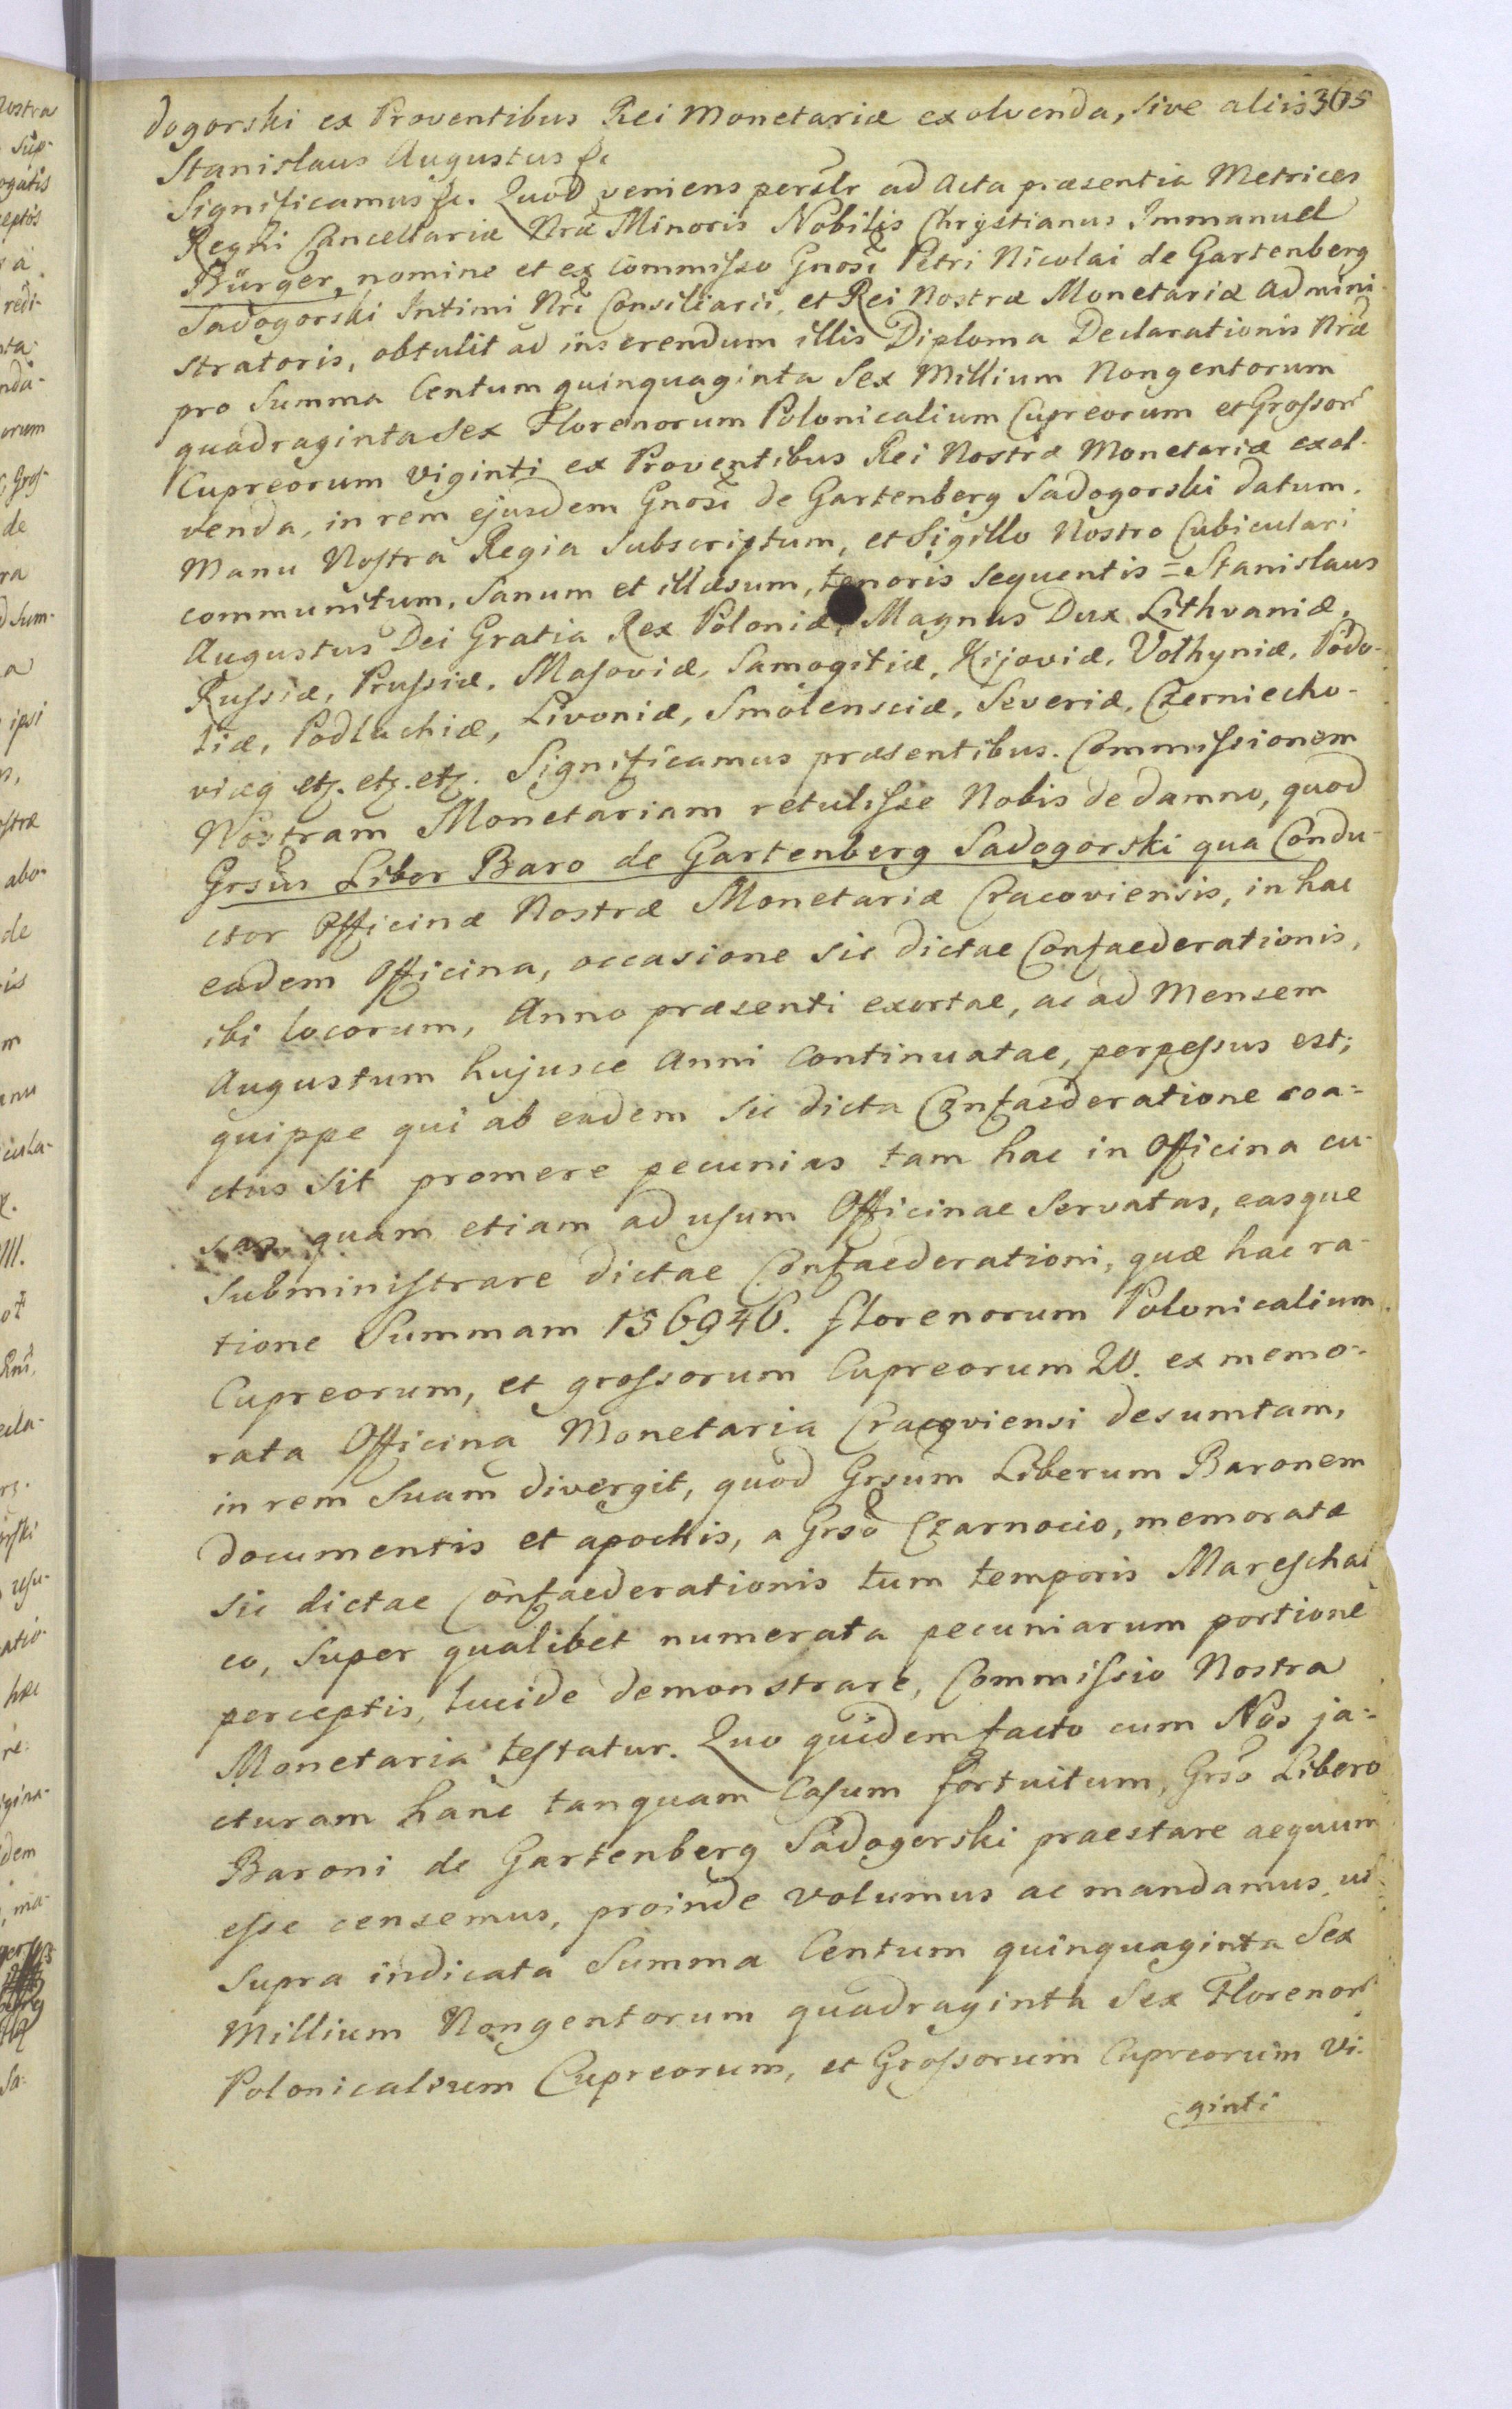 dogorski ex Proventibus Rei Monetariæ exolvenda, sive aliis 365
Stanislaus Augustus &c
Significamus &c. Quod veniens persłr ad Acta præsentia Metrices
Regni Cancellariæ Nræ Minoris Nobilis Chrystianus Immanuel
Bürger, nomine et ex Commisso Gnosi Petri Nicolai de Gartenberg
Sadogorski Intimi Nri Consiliarii, et Rei Nostræ Monetariæ Admini-
stratoris, obtulit ad inserendum illis Diploma Declarationis Nræ
pro Summa Centum quinquaginta Sex Millium Nongentorum
quadraginta Sex Florenorum Polonicalium Cupreorum et Grossor
Cupreorum viginti ex Proventibus Rei Nostræ Monetariæ exol-
venda, in rem ejusdem Gnosi de Gartenberg Sadogorski datum.
Manu Nostra Regia Subscriptum, et Sigillo Nostro Cubiculari
communitum, Sanum et illæsum, tenoris sequentis = Stanislaus
Augustus Dei Gratia Rex Poloniæ, Magnus Dux Lithvaniæ,
Russiæ, Prussiæ, Masoviæ, Samogitiæ, Kijoviæ, Volhyniæ, Podo-
liæ, Podlachiæ, Livoniæ, Smolensciæ, Severiæ, Czerniecho-
viæq etz. etz. etz. Significamus præsentibus. Commissionem
Nostram Monetariam retulisse Nobis de damno, quod
Grsus Liber Baro de Gartenberg Sadogorski qua Condu-
ctor Officinæ Nostræ Monetariæ Cracoviensis, in hac
eadem Officina, occasione sic dictae Confaederationis,
ibi locorum, Anno præsenti exortae, ac ad Mensem
Augustum hujusce Anni Continuatae, perpessus est;
quippe qui ab eadem sic dicta Confaederatione coa=
ctus sit promere pecunias tam hac in Officina cu-
sas quam etiam ad usum Officinae Servatas, easque
Subministrare dictae Confaederationi, quæ hac ra-
tione Summam 156946. florenorum Polonicalium
Cupreorum, et grossorum Cupreorum 20. ex memo=
rata Officina Monetaria Cracoviensi desumtam,
in rem Suam divergit, quod Grsum Liberum Baronem
documentis et apochis, a Grso Czarnocio, memoratæ
sic dictae Confaederationis tum temporis Mareschal
co, super qualibet numerata pecuniarum portione
perceptis, lucide demonstrare, Commissio Nostra
Monetaria testatur. Quo quidem facto cum Nos ja=
cturam hanc tanquam Casum fortuitum, Grso Libero
Baroni de Gartenberg Sadogorski praestare aequum
esse censemus, proinde volumus ac mandamus, ut
supra indicata Summa Centum quinquaginta Sex
Millium Nongentorum quadraginta Sex Florenor
Polonicalium Cupreorum, et Grossorum Cupreorum Vi-
ginti